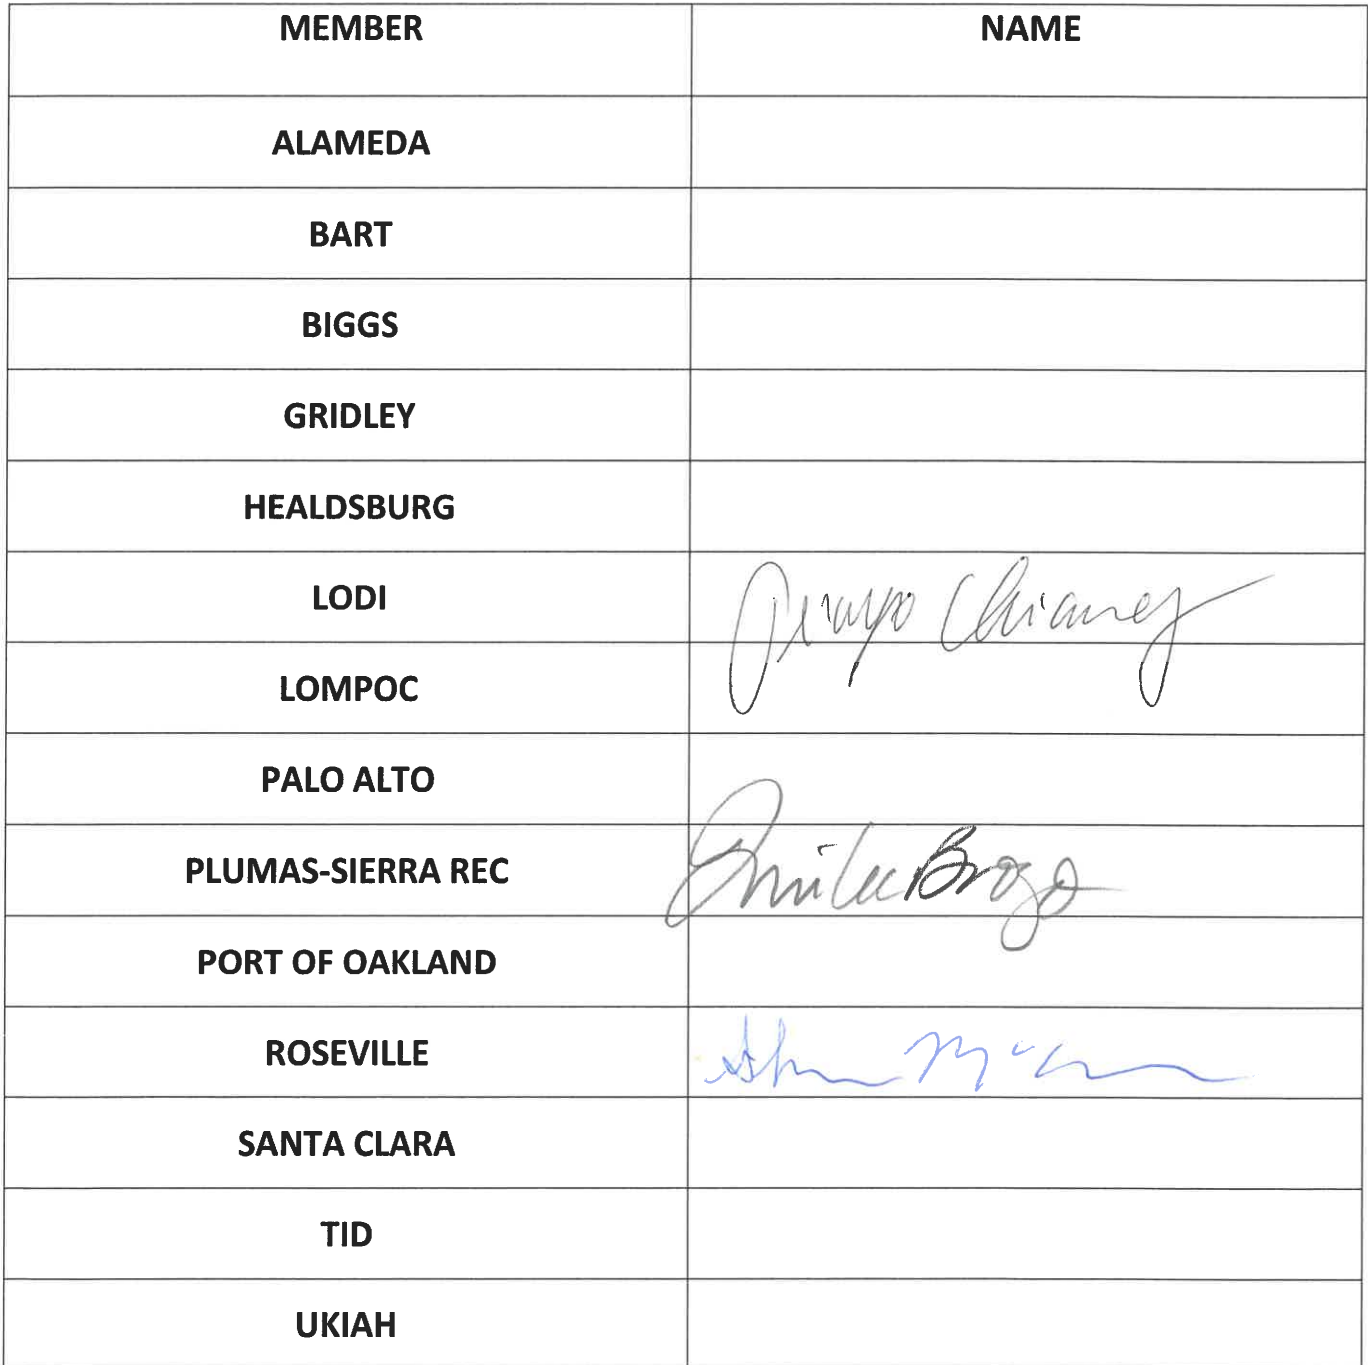 MEMBER NAME
ALAMEDA
BART
BIGGS
GRIDLEY
HEALDSBURG
LODI
LOMPOC
PALO ALTO
PLUMAS-SIERRA REC
PORT OF OAKLAND
ROSEVILLE
SANTA CLARA
TID
UKIAH